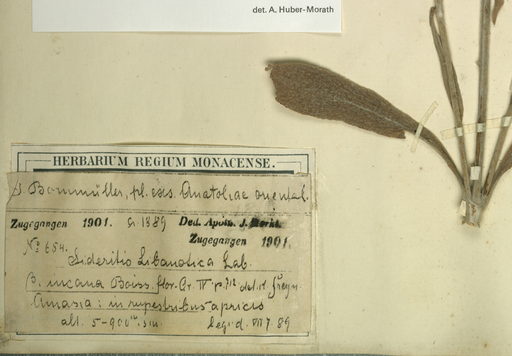 det. A. Huber-Morath
HERBARIUM REGIUM MONACENSE.
J. Bornmüller, pl. exs. Anatoliae oriental.
Zugegangen 1901. a. 1889 Ded. Apoth. J.
Zugegangen 1901.
No 654.
Sideritis Libanotica Lab.
β. incana Boiss. flor. Or. IV p. 712 det. Freyn
Amasia: in rupestribus apricis
alt. 5-900 m. s.m. leg. d. VII 89